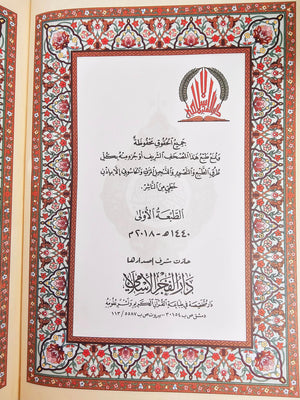 جميع الحقوق محفوظة
ويمنع طبع هذا المصحف الشريف أو جزء منه بكل
طرق الطبع والتصوير والتسجيل المرئي والحاسوبي إلا بإذن
خطي من الناشر.
الطبعة الأولى
١٤٤٠هـ - ٢٠١٨م
حازت شرف إصدارها
دار الفجر الإسلامي
دار متخصصة في طباعة القرآن الكريم ونشر علومه
دمشق ص.ب ٣٠١٥٤ - بيروت ص.ب ٥٥٨٧ / ١١٣